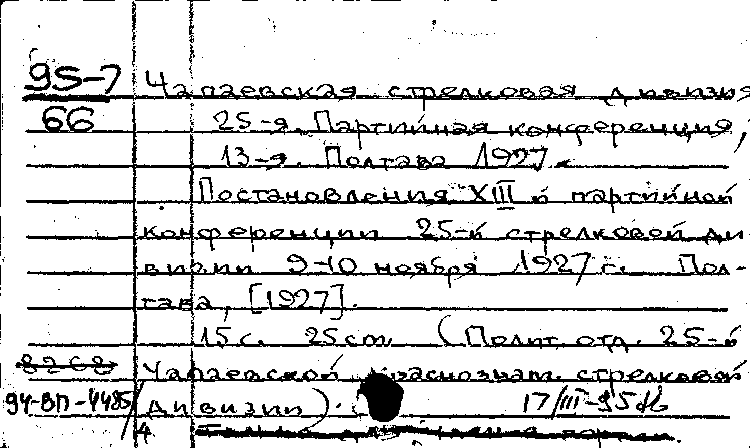 95-7 Чапаевская стрелковая дивизия
66 25-я. Партийная конференция,
13-я. Полтава 1927.
Постановления XIII й партийной
конференции 25-й стрелковой ди
визии 9-10 ноября 1927 г. Пол-
тава, [1927].
15 с. 25 cm (Полит. отд. 25-й
8268 Чапаевской краснознам. стрелковой
94-ВП-4485/ дивизии).
17/III-95
4